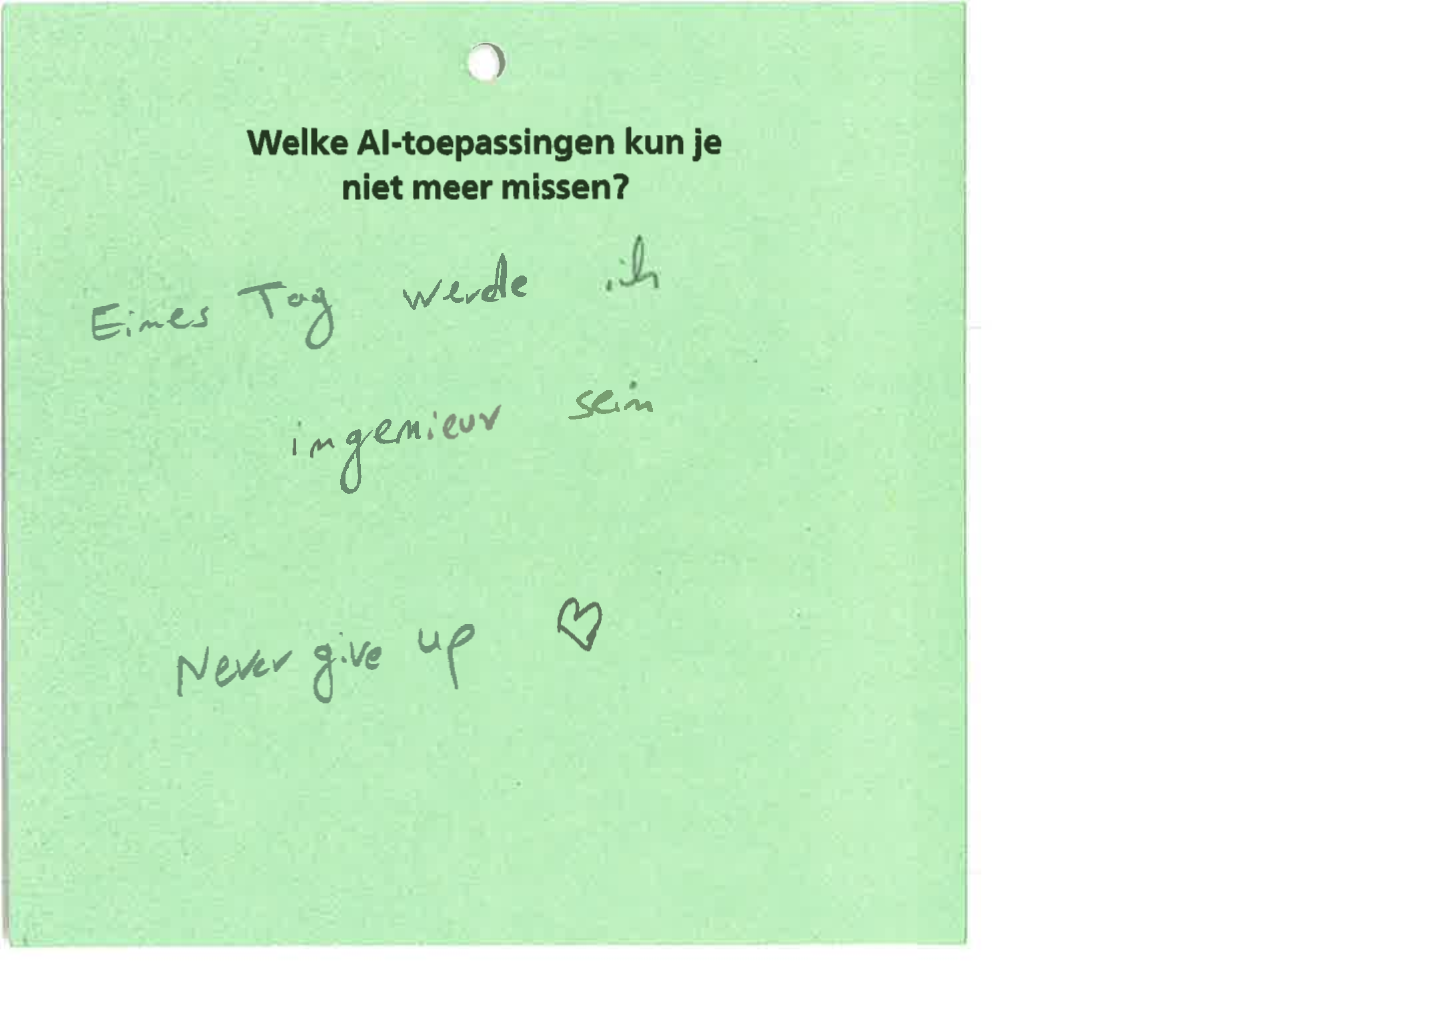 Welke AI-toepassingen kun je
niet meer missen?
Eines Tag werde ich
ingenieur sein
Never give up ♡